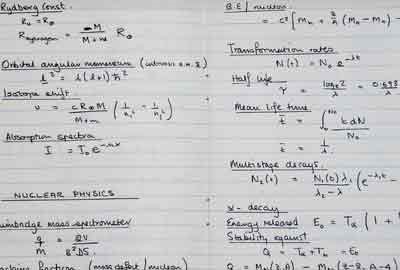 Rydberg Const.
R₀ = R∞
R_hydrogen = M / (M + m) R∞
Orbital angular momentum
l² = l(l+1) ħ²
Isotope shift.
ν = c R∞ M / (M + m) (1/n₁² − 1/n₂²)
Absorption spectra
I = I₀ e^-
NUCLEAR PHYSICS
mass spectrometer
q / m =
fraction (mass defect / nucleon)
B.E / nucleon
= c² [ Mₙ + (Mₕ − Mₙ) −
Transformation rates
N(t) = N₀ e^-λt
Half life
τ = logₑ2 / λ = 0.693
Mean life time
t̄ = ∫ t dN / N₀
t̄ = 1 / λ
Multistage decays.
N₂(t) = N₁(0) λ₁ / (λ₂ − λ₁) ( e^-λ₁t −
α - decay
Energy released E₀ = Tα ( 1 +
Stability against
Q = Tα + Tb = E₀
Q = (Z, A) − (Z-2, A-4)